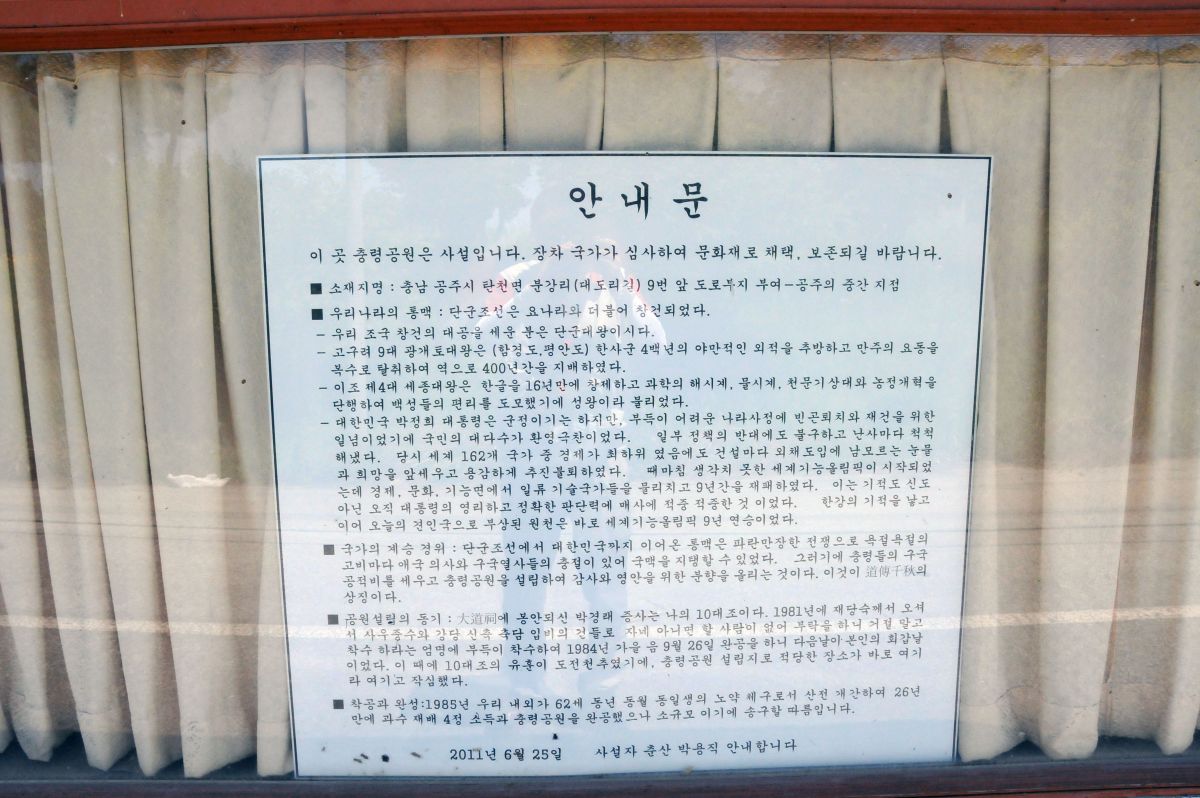 안 내 문
이 곳 충령공원은 사설입니다. 장차 국가가 심사하여 문화재로 채택, 보존되길 바랍니다.
■ 소재지명 : 충남 공주시 탄천면 분강리(대도리길) 9번 앞 도로부지 부여-공주의 중간 지점
■ 우리나라의 통맥 : 단군조선은 요나라와 더불어 창건되었다.
- 우리 조국 창건의 대공을 세운 분은 단군대왕이시다.
- 고구려 9대 광개토대왕은 (함경도,평안도) 한사군 4백년의 야만적인 외적을 추방하고 만주의 요동을
복수로 탈취하여 역으로 400년간을 지배하였다.
- 이조 제4대 세종대왕은 한글을 16년만에 창제하고 과학의 해시계, 물시계, 천문기상대와 농정개혁을
단행하여 백성들의 편리를 도모했기에 성왕이라 불리었다.
- 대한민국 박정희 대통령은 군정이기는 하지만, 부득이 어려운 나라사정에 빈곤퇴치와 재건을 위한
일념이었기에 국민의 대다수가 환영극찬이었다. 일부 정책의 반대에도 불구하고 난사마다 척척
해냈다. 당시 세계 162개 국가 중 경제가 최하위 였음에도 건설마다 외채도입에 남모르는 눈물
과 희망을 앞세우고 용감하게 추진불퇴하였다. 때마침 생각치 못한 세계기능올림픽이 시작되었
는데 경제, 문화, 기능면에서 일류 기술국가들을 물리치고 9년간을 재패하였다. 이는 기적도 신도
아닌 오직 대통령의 영리하고 정확한 판단력에 매사에 적중 적중한 것 이었다. 한강의 기적을 낳고
이어 오늘의 경인국으로 부상된 원천은 바로 세계기능올림픽 9년 연승이었다.
■ 국가의 계승 경위 : 단군조선에서 대한민국까지 이어온 통맥은 파란만장한 전쟁으로 욕절욕절의
고비마다 애국 의사와 구국열사들의 충절이 있어 국맥을 지탱할 수 있었다. 그러기에 충령들의 구국
공적비를 세우고 충령공원을 설립하여 감사와 영안을 위한 분향을 올리는 것이다. 이것이 道傳千秋의
상징이다.
■ 공원설립의 동기 : 大道祠에 봉안되신 박경래 증사는 나의 10대조이다. 1981년에 재당숙께서 오셔
서 사우중수와 강당 신축 축담 입비의 건들로 자네 아니면 할 사람이 없어 부탁을 하니 거절 말고
착수 하라는 엄명에 부득이 착수하여 1984년 가을 음 9월 26일 완공을 하니 다음날이 본인의 회갑날
이었다. 이 때에 10대조의 유훈이 도전천추였기에, 충령공원 설립지로 적당한 장소가 바로 여기
라 여기고 작심했다.
■ 착공과 완성:1985년 우리 내외가 62세 동년 동월 동일생의 노약 체구로서 산전 개간하여 26년
만에 과수 재배 4정 소득과 충령공원을 완공했으나 소규모 이기에 송구할 따름입니다.
2011년 6월 25일 사설자 춘산 박용직 안내합니다